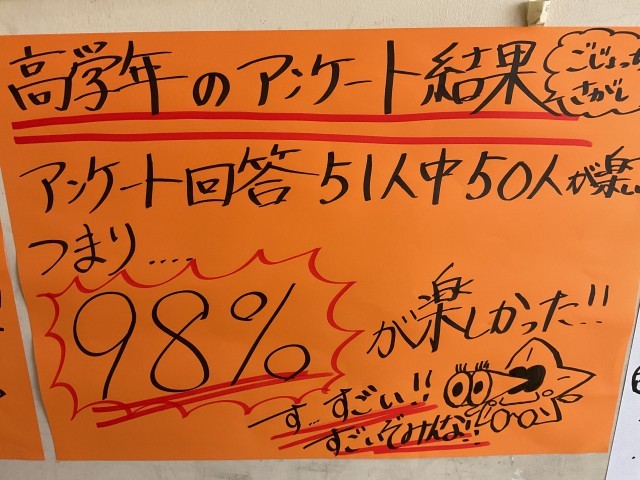 高学年のアンケート結果
ごじょっち
さがし
アンケート回答51人中50人が楽し
つまり....
98%
が楽しかった!!
す...すごい!!
すごいぞみんな!!